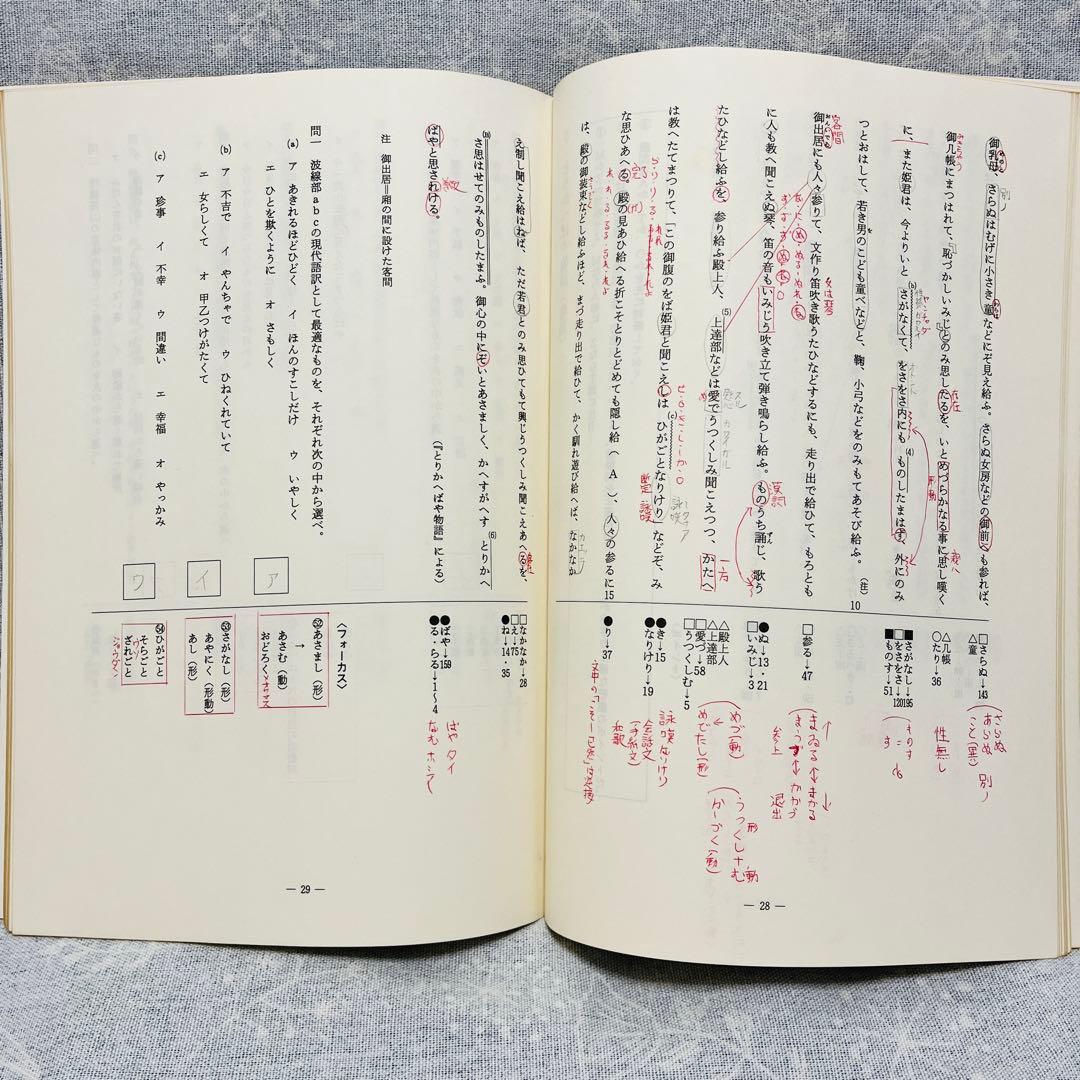 御乳母、さらぬはむげに小さき童などにぞ見え給ふ。さらぬ女房などの御前へも参れば、
御几帳にまつはれて、恥づかしいみじとのみ思したるを、いとめづらかなる事に思し嘆く
に、また姫君は、今よりいとさがなくて、をさをさ内にもものしたまはず、外にのみ
つとおはして、若き男のこども童べなどと、鞠、小弓などをのみもてあそび給ふ。
御出居にも人々参りて、文作り笛吹き歌うたひなどするにも、走り出で給ひて、もろとも
に人も教へ聞こえぬ琴、笛の音もいみじう吹き立て弾き鳴らし給ふ。ものうち誦じ、歌う
たひなどし給ふを、参り給ふ殿上人、上達部などは愛でうつくしみ聞こえつつ、かたへ
は教へたてまつりて、「この御腹のをば姫君と聞こえしはひがごとなりけり」などぞ、み
な思ひあへる。殿の見あひ給へる折こそとりとどめても隠し給（ A ）、人々の参るに
は、殿の御装束などし給ふほど、まづ走り出で給ひて、かく馴れ遊び給へば、なかなか
(注)
10
15
(b)
(4)
(5)
(c)
□さらぬ→143
△童
△几帳
○たり→36
■さがなし→195
■をさをさ→120
■ものす→51
□参る→47
●ぬ→13・21
□いみじ→3
△殿上人
△上達部
□愛づ→58
□うつくしむ→5
●き→15
●なりけり→19
●り→37
さらぬ
あらぬ 別ノ
こと(異)
性無し
まゐる↔まかる
参上 退出
めづ(動)
めでたし(形)
詠嘆 なりけり
会話文
和歌
客間
漢詩
一方
断定・詠嘆
— 28 —
え制し聞こえ給はねば、ただ若君とのみ思ひてもて興じうつくしみ聞こえあへるを、
さ思はせてのみものしたまふ。御心の中にぞいとあさましく、かへすがへすとりかへ
ばやと思される。
(a)
(6)
（『とりかへばや物語』による）
注 御出居＝廂の間に設けた客間
問一 波線部ａｂｃの現代語訳として最適なものを、それぞれ次の中から選べ。
(a) ア あきれるほどひどく イ ほんのすこしだけ ウ いやしく
エ ひとを欺くように オ さもしく
(b) ア 不吉で イ やんちゃで ウ ひねくれていて
エ 女らしくて オ 甲乙つけがたくて
(c) ア 珍事 イ 不幸 ウ 間違い エ 幸福 オ やっかみ
ア
イ
ウ
□なかなか→28
□え→75
●ね→14・35
●ばや→159
●る・らる→1〜4
ばや タイ
〈フォーカス〉
㊾あさまし（形）
→
あさむ（動）
おどろく
㊼さがなし（形）
あやにく（形動）
あし（形）
ひがごと
そらごと
ざれごと
ウソ
— 29 —